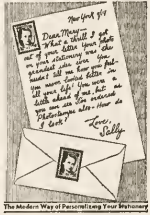 New York 9/9
Dear Mary—
What a thrill I got
out of your letter. Your photo
on your stationery was the
grandest idea ever. You
needn't tell me how you feel—
you never looked better in
all your life! You were a
little ahead of me, but as
you can see I've ordered
Photostamps also. How do
I look?
Love,
Sally.
The Modern Way of Personalizing Your Stationery